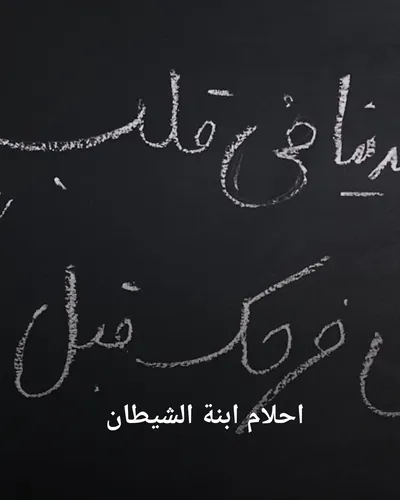 في قلب
فرحك قبل
احلام ابنة الشيطان